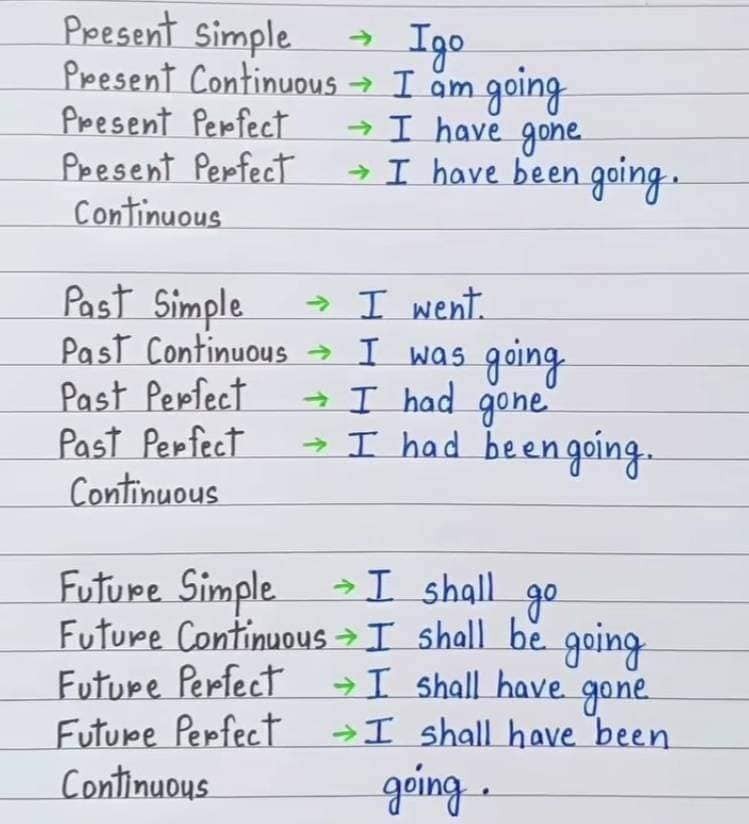 Present Simple → I go
Present Continuous → I am going
Present Perfect → I have gone
Present Perfect → I have been going.
Continuous
Past Simple → I went.
Past Continuous → I was going
Past Perfect → I had gone
Past Perfect → I had been going.
Continuous
Future Simple → I shall go
Future Continuous → I shall be going
Future Perfect → I shall have gone
Future Perfect → I shall have been
Continuous going.